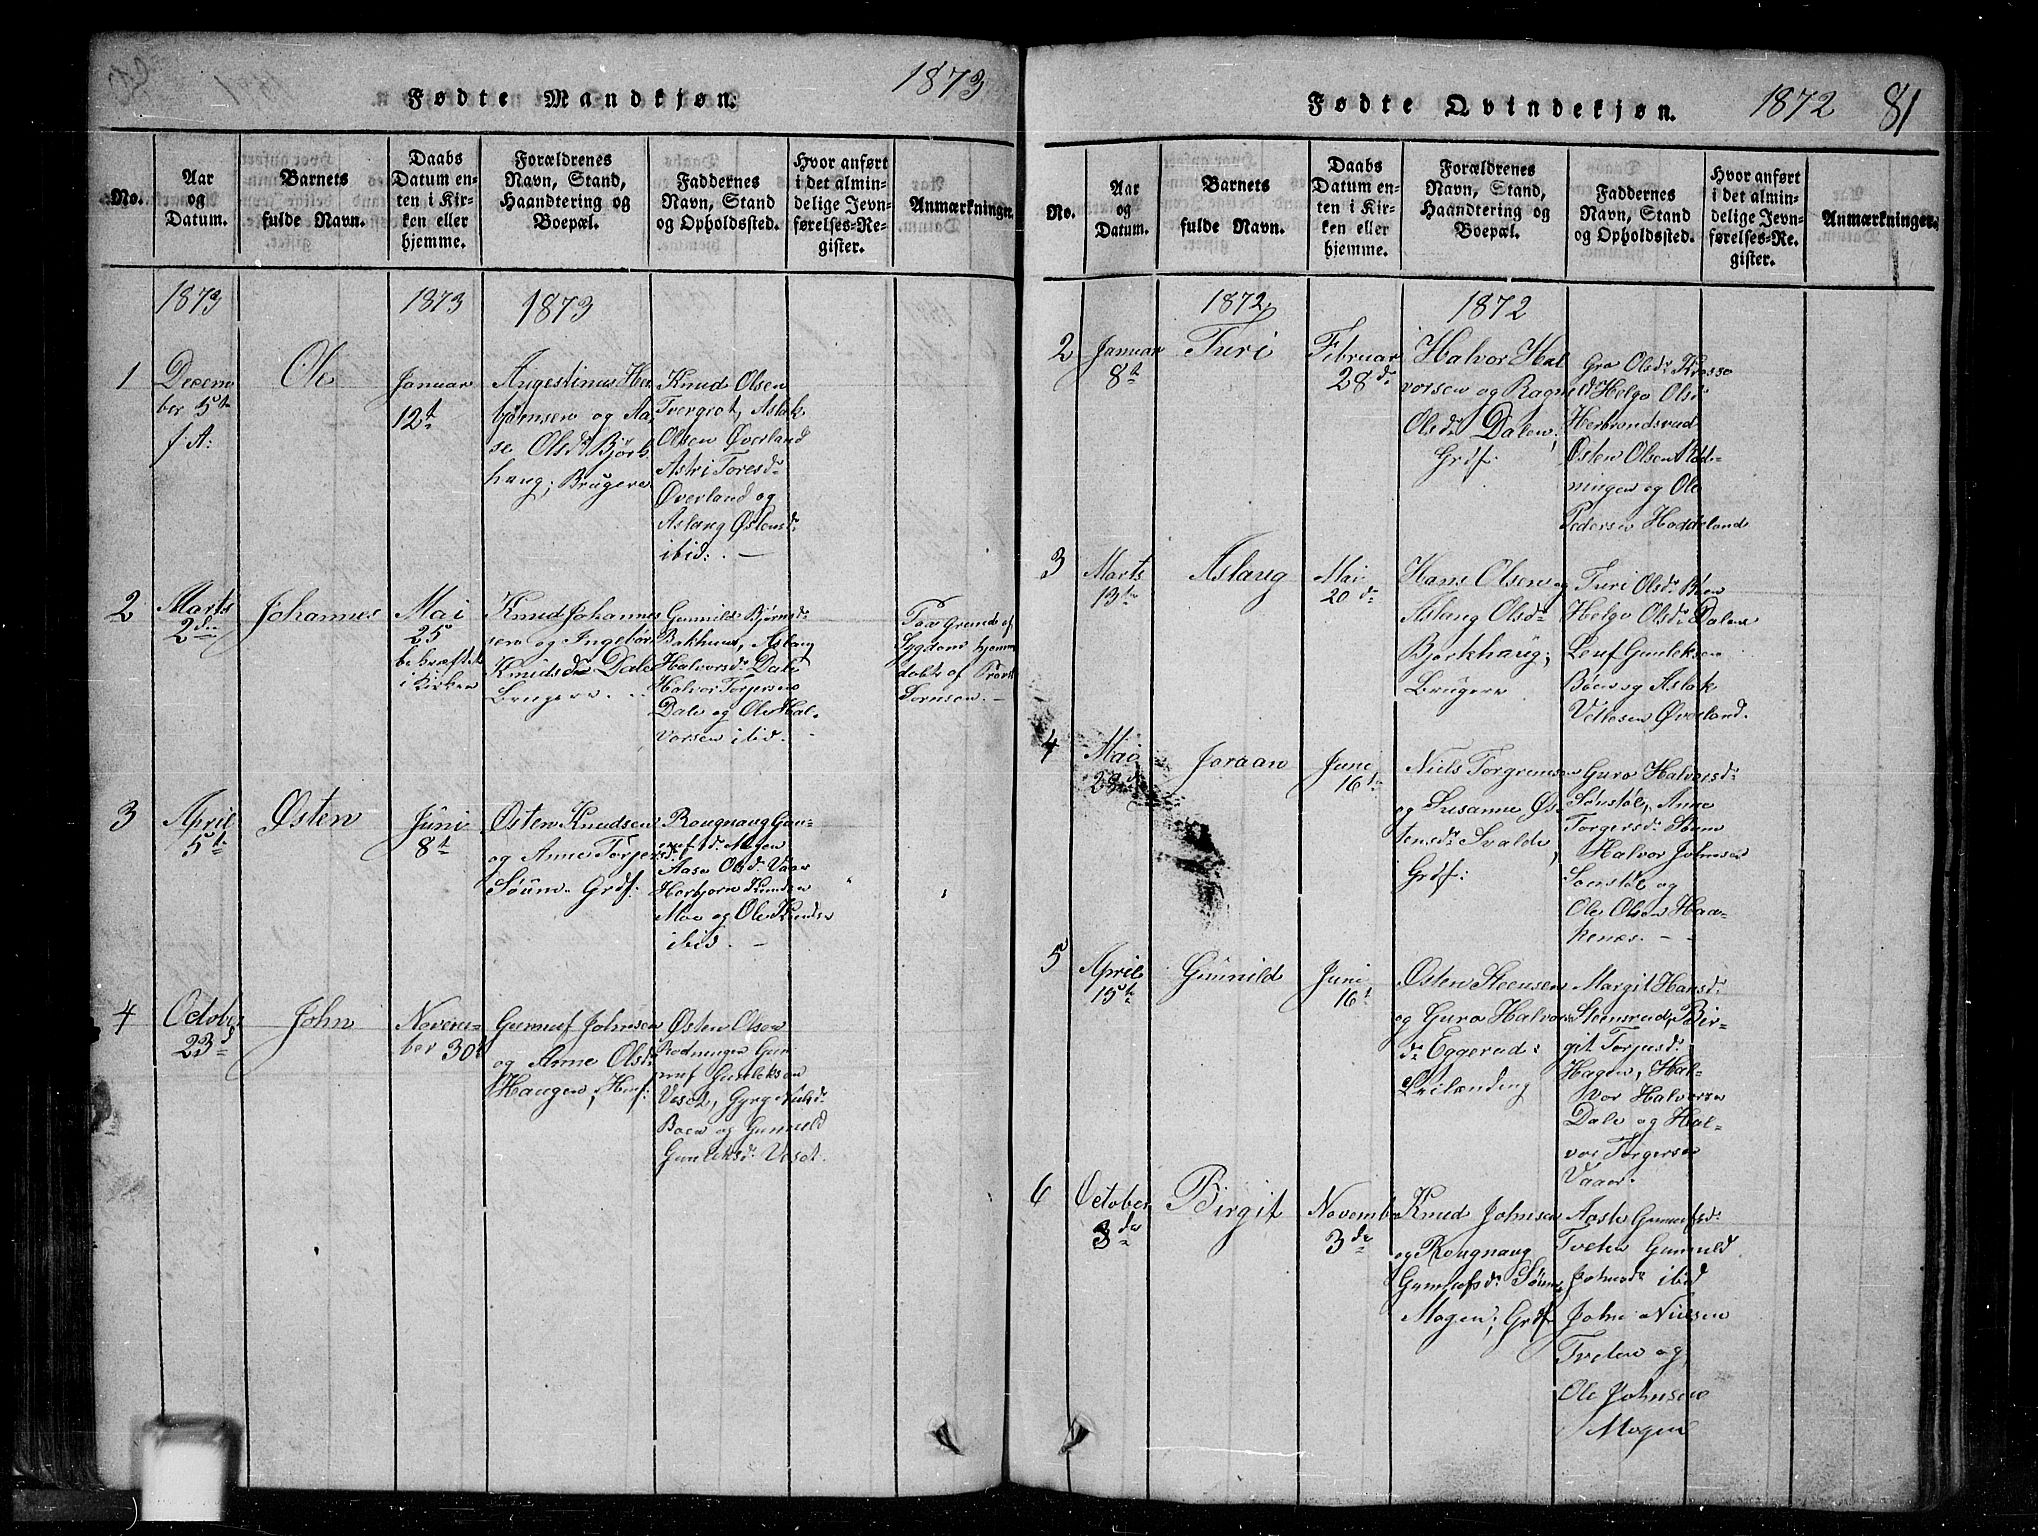 Fødte Mandkjøn.
1873
No.
Aar
og
Datum.
Barnets
fulde Navn.
Daabs
Datum en-
ten i Kir-
ken eller
hjemme.
Forældrenes
Navn, Stand,
Haandtering og
Boepæl.
Faddernes
Navn, Stand
og Opholdssted.
Hvor anført
i det almin-
delige Jevn-
førelses-Re-
gister.
Anmærkninger.
1873
1873
1873
1
Decem
ber 5te
f A:
Ole
Januar
12te
Augestinus Her
bjørnsen og Aa
se Olsdr Bjørk
haug; Brugere
Knud Olsen
Tvergrot, Aslak
Olsen Øverland
Astri Toresdr
Øverland og
Aslaug Østensdr
ibid: —
2
Marts
2den
Johannes
Mai
25
bekræftet
i Kirken
Knud Johannes
sen og Ingebor
Knudsdr Dale
Brugere
Gunnild Bjørnsd
Bakhuus, Aslaug
Halvorsdr Dale
Halvor Torjersen
Dale og Ole Hal-
vorsen ibid. -
Paa grund af
Sygdom hjemme
døbt af Provst
3
April
5te
Østen
Juni
8de
Østen Knudsen
og Anne Torjersdr
Søum Grdf:
Rougnaug Gun-
nufsd. Mogen
Aase Olsdr Vaar
Herbjørn Knudsen
Moe og Ole Knudsen
ibid. —
4
October
23d
John
Novem-
ber 30te
Gunnuf Johnsen
og Anne Olsdr
Haugen, Husf:
Østen Olsen
Rodningen Gun
nuf Gunleksen
Vesot, Gyrg Nilsd
Boen og Gunnild
Gunleksdr Vesot.
Fødte Qvindekjøn.
1872
81
No.
Aar
og
Datum.
Barnets
fulde Navn.
Daabs
Datum en-
ten i Kir-
ken eller
hjemme.
Forældrenes
Navn, Stand,
Haandtering og
Boepæl.
Faddernes
Navn, Stand
og Opholdssted.
Hvor anført
i det almin-
delige Jevn-
førelses-Re-
gister.
Anmærkninger.
1872
1872
2
Januar
8de
Turi
Februar
28de
Halvor Hal
vorsen og Ragnild
Olsdr Dalen,
Grdf.
Gro Olsdr Krosso
Helgo Olsd
Herbrandsrud
Østen Olsen Rød-
ningen og Ole
Pedersen Haddeland
3
Marts
13de
Aslaug
Mai
20de
Hans Olsen og
Aslaug Olsdr
Bjørkhaug;
Brugere
Turi Olsdr Bøen
Helgo Olsdr Dalen
Leuf Gunleksen
Bøen og Aslak
Vetlesen Øverland.
4
Mai
Joraan
Juni
16de
Niels Torgrimsen
og Susanne Øs
tensdr Svalde,
Grdf:
Guro Halvorsd:
Sønstøl, Anne
Torgersdr Søum
Halvor Johnsen
Sønstøl og
Ole Olsen Haa-
kenæs. -
5
April
15de
Gunnild
Juni
16de
Østen Steensen
og Guro Halvors
dr Eggerud:
Leilending
Margit Hansd.
Steensrud, Bir-
git Torjusdr
Hagen, Hal-
vor Halvorsen
Dale og Hal-
vor Torgersen
Vaaer.
6
October
3de
Birgit
Novembr
3de
Knud Johnsen
og Rougnaug
Gunnufsdr Søum
Mogen; Grdf
Aaste Gunnufsd:
Tveten Gunnuld
Johnsdr ibid
John Nielsen
Tveten og
Ole Johnsen
Mogen